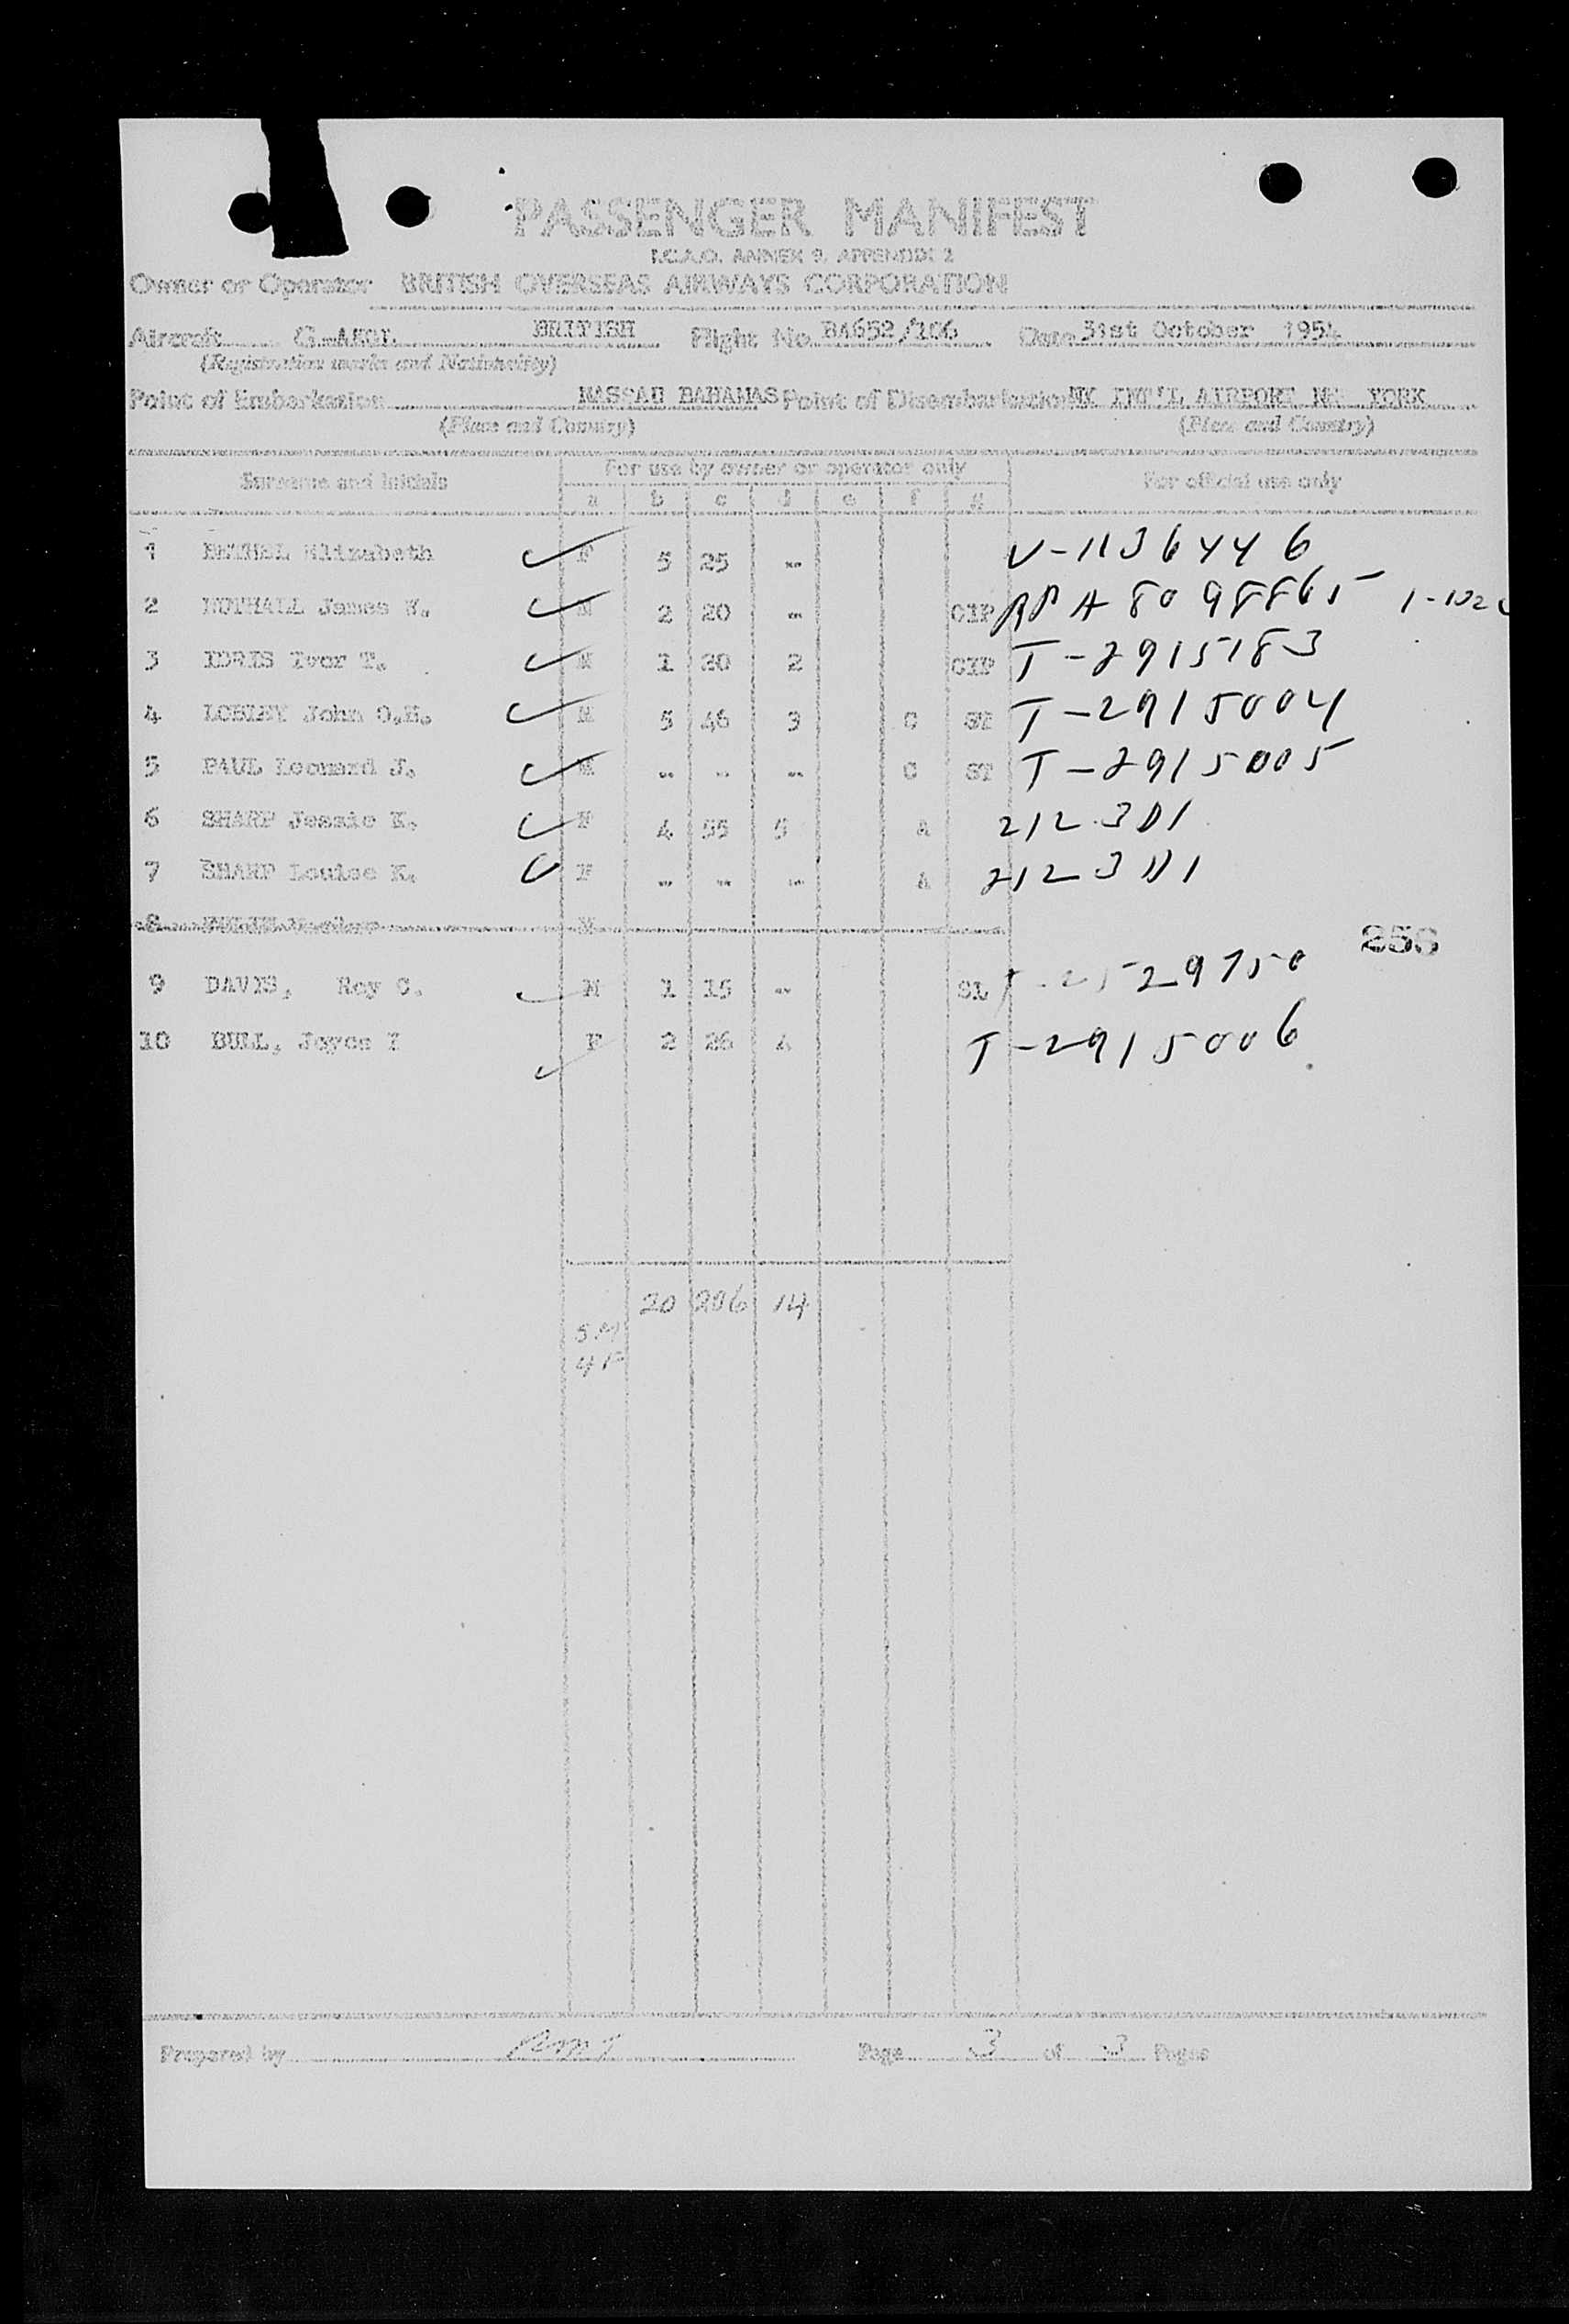 PASSENGER MANIFEST
I.C.A.O. ANNEX 9, APPENDIX 2
Owner or Operator BRITISH OVERSEAS AIRWAYS CORPORATION
Aircraft BRITISH Flight No. BA652/106 Date 31st October 1954
(Registration marks and Nationality)
Point of Embarkation NASSAU BAHAMAS Point of Disembarkation NY INT'L AIRPORT NEW YORK
(Place and Country) (Place and Country)
Surname and Initials For use by owner or operator only For official use only
a b c d e f g
1 BETHEL Elizabeth F 5 25 - V-1136446
2 James M 2 20 - CIP A 8098865
3 IDRIS Ivor T. M 1 20 2 CIP T-2915183
4 John O.H. M 5 46 3 C ST T-2915004
5 PAUL Leonard J. M - - - C ST T-2915005
6 SHARP Jessie K. F 4 55 5 A 212.3D1
7 SHARP Louise K. F - - - A 212 3D1
8 M
256
9 DAVIS, Roy C. M 1 15 - SL 29750
10 BULL, Joyce I F 2 26 4 T-2915006
20 206 14
5 M
4 F
Prepared by Page 3 of 3 Pages